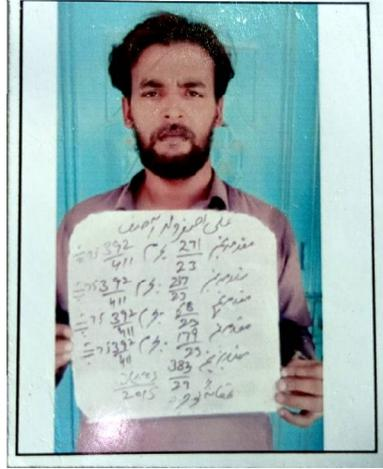 علی اصغر ولد آصف
مقدمہ نمبر 271/23 جرم 392/411 ت پ
مقدمہ نمبر 217/23 جرم 392/411 ت پ
مقدمہ نمبر 58/23 جرم 392/411 ت پ
مقدمہ نمبر 179/23 جرم 392/411 ت پ
مقدمہ نمبر 383/23 2015
تھانہ